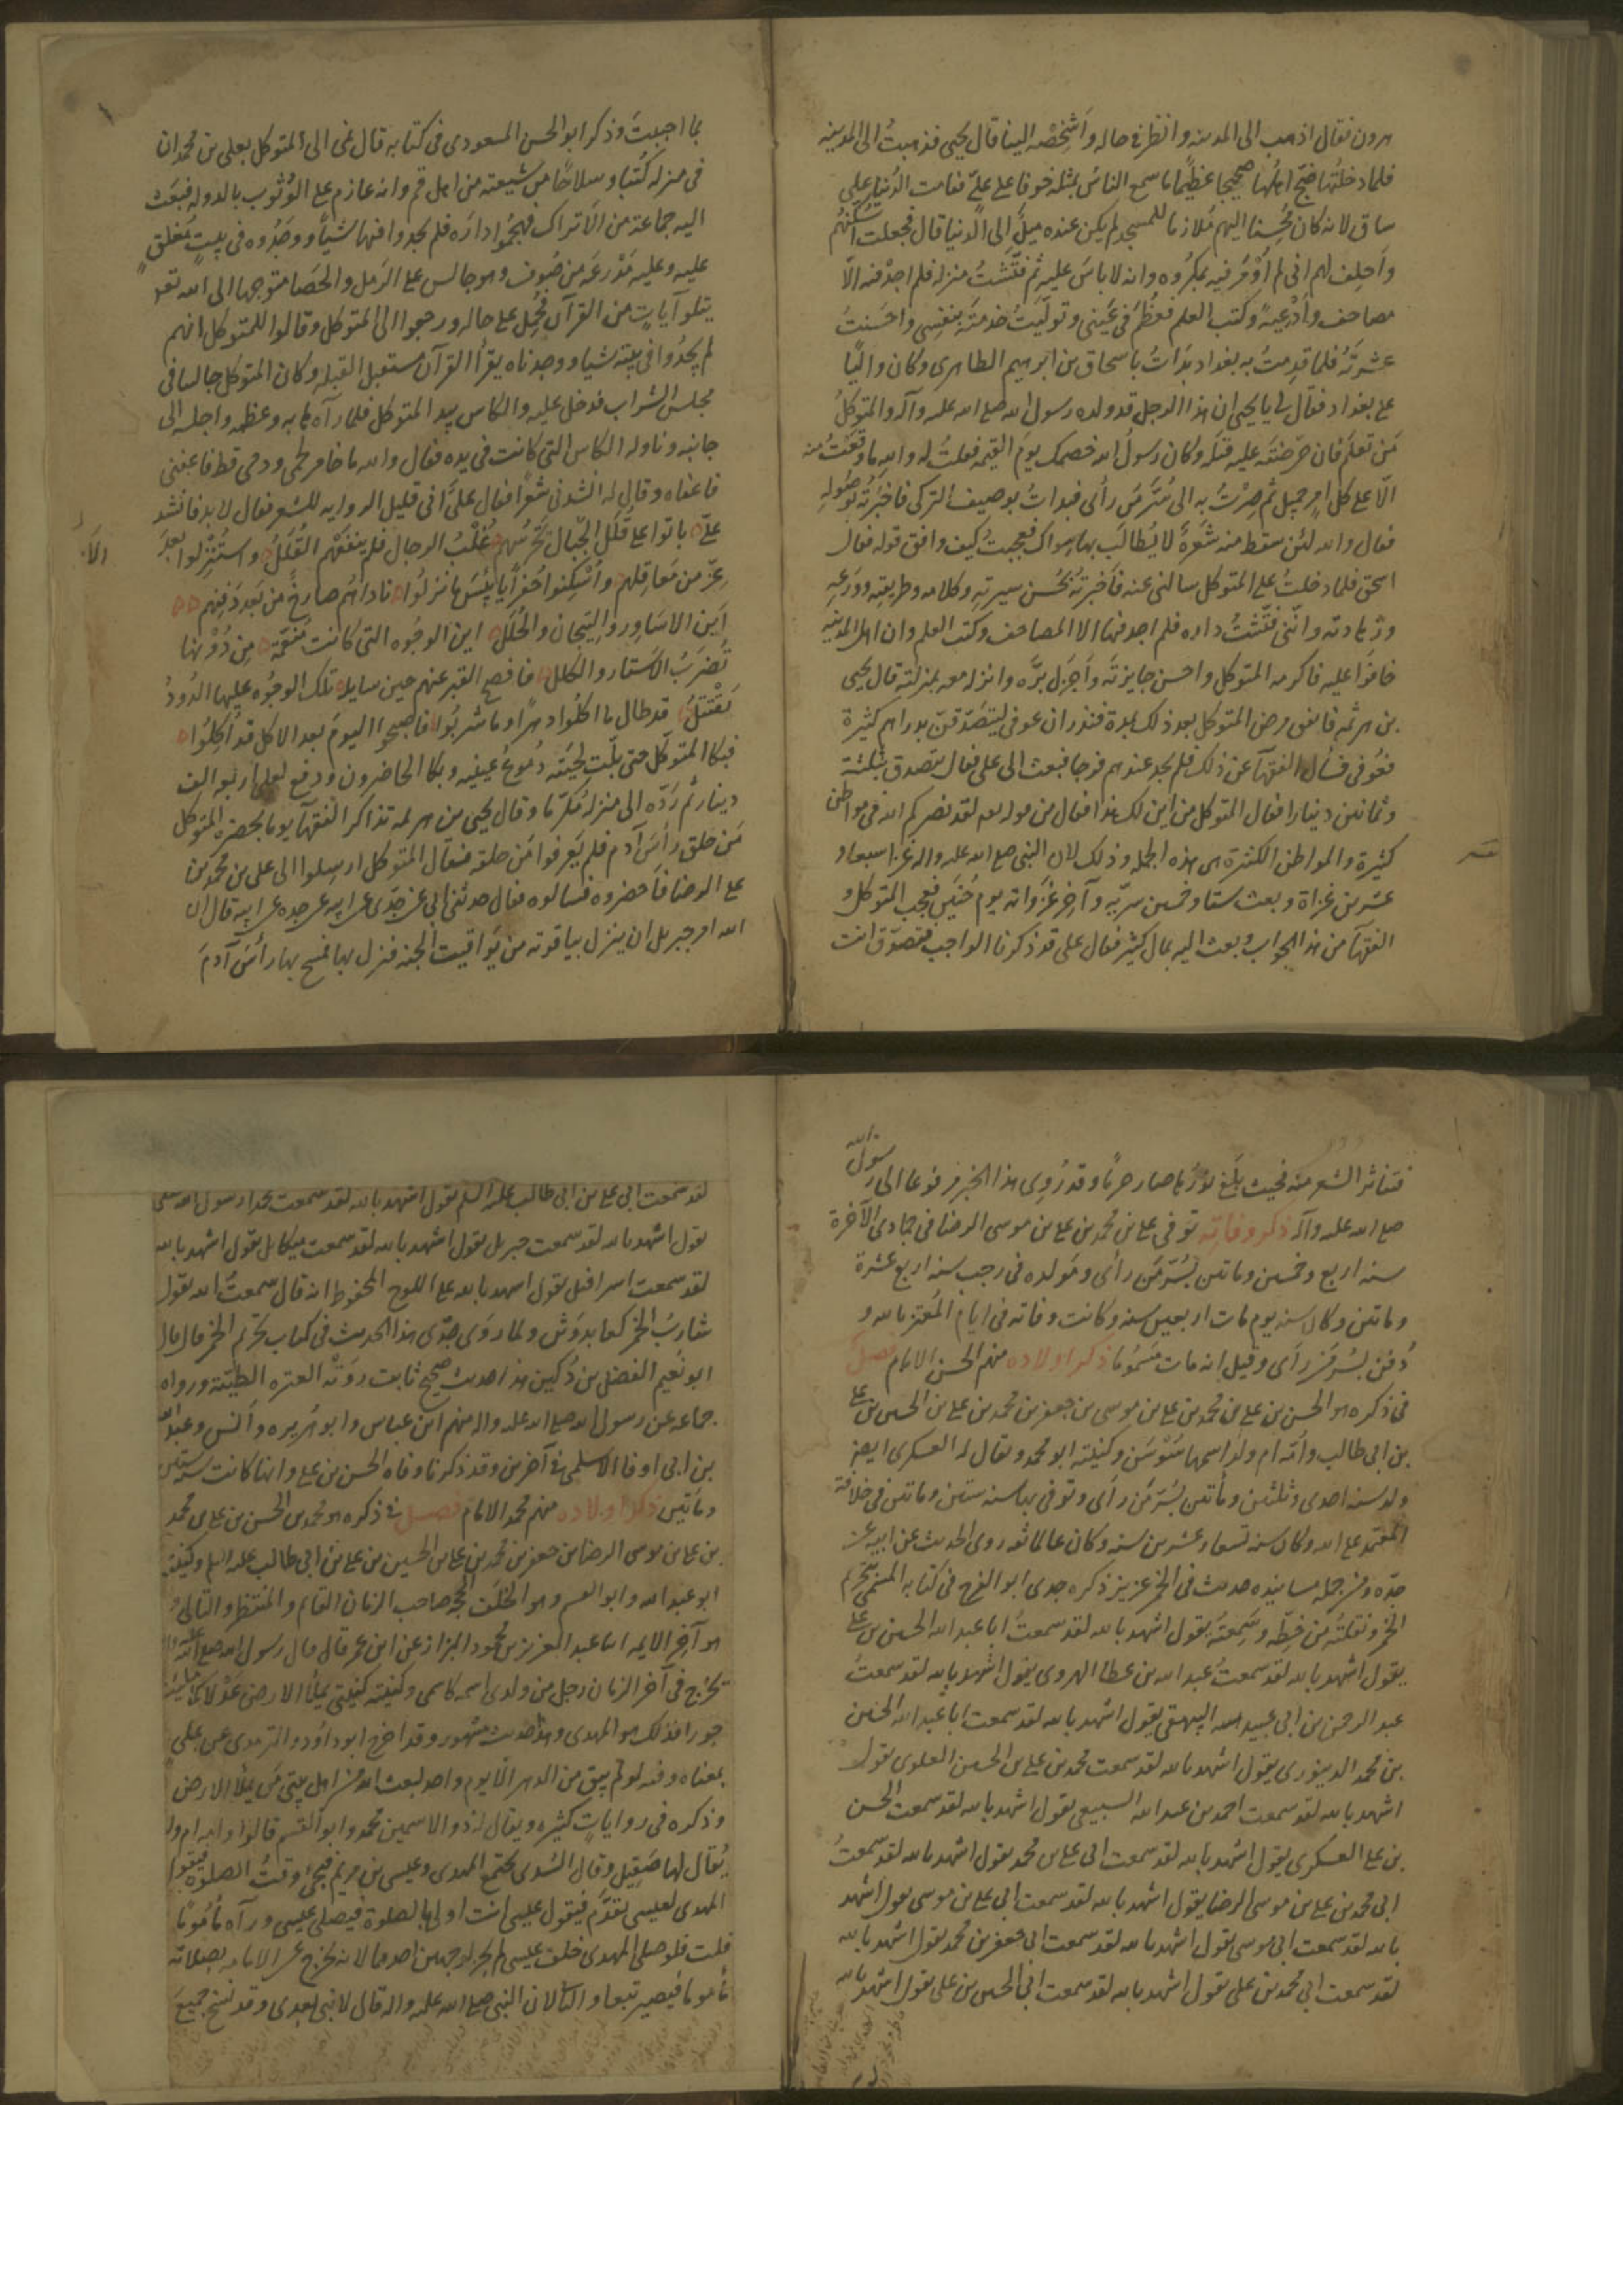 هرون فقال اذهب الى المدينه وانظر فى حاله واَشخِصْه الينا قال يحيى فذهبتُ الى المدينه
فلما دخلتُها ضجّ اهلها ضجيجا عظيمًا ما سمع الناسُ بمثله خوفا على علىّ فقامت الدُنيا على
ساق لانه كان مُحسِنا اليهم مُلازما للمسجد لم يكن عنده ميلٌ الى الدنيا قال فجعلت اُسَكّنهُم
واَحلِف لهم انى لم اُوْمَر فيه بمكرُوه وانه لا باسَ عليه ثم فتَّشتُ منزله فلم اجدْ فيه الّا
مصاحف واَدْعِيةً وكتب العلم فعظُمَ فى عَينى وتولّيتُ خدمتَه بنفسِى واحسَنتُ
عشرتَهُ فلما قدِمتُ به بغداد بدَاتُ باسحاق بن ابرهيم الطاهرى وكان واليًا
على بغداد فقال لى يا يحيى ان هذا الرجل قد ولده رسول الله صلى الله عليه وآله والمتوكلُ
مَن تعلم فان حرّضتَه عليه قتله وكان رسولُ الله خصمك يومَ القيمه فقلتُ له والله ما وقعَتُ منه
الّا على كل امرٍ جميل ثم صِرْتُ به الى سُرّ مَن رأى فبداتُ بوصيف التركى فاخبرتُه بوصُوله
فقال والله لئن سقط منه شَعرَةٌ لا يُطالَب بها سِواك فعجبتُ كيف وافق قوله قول
اسحق فلما دخلتُ على المتوكل سالنى عنه فاَخبرتُه بحُسن سيرتِهِ وكلامه وطريقتِه ووَرَعِهِ
وزهادته وانّنى فتَّشتُ داره فلم اجد فيها الا المصاحف وكتب العلم وان اهل المدينه
خافوا عليه فاكرمه المتوكل واحسن جايزتَه وَاَجزَل برَّه وانزله معه بمنزلته قال يحيى
بن هرثمه فاتفق مرض المتوكل بعد ذلك بمدة فنذر ان عوفى ليتصدّقنّ بدراهم كثيرة
فعُوفى فسأل الفقهآ عن ذلك فلم يجد عندهم فرجا فبعث الى على فقال يتصدق بثلثة
وثمانين دينارا فقال المتوكل من اين لك هذا فقال من قوله لقد نصركم الله فى مواطن
كثيرة والمواطن الكثيرة هى هذه الجمله وذلك لان النبى صلى الله عليه واله غزا سبعا و
عشرين غزاة وبعث ستا وخمسين سريّه وآخِر غَزَواته يومُ حُنَينٍ فعجب المتوكل و
الفقهآ من هذا الجواب وبعث اليه بمال كثير فقال على قد ذكرنا الواجب فتصدّق انت
بما احببتَ وذكر ابو الحسن المسعودى فى كتابه قال نمى الى المتوكل بعلى بن محمد ان
فى منزله كُتبًا وسلاحًا من شيعته من اهل قم وانه عازم على الوُثوب بالدوله فبعث
اليه جماعة من الاَتراك فهجمُوا دارَه فلم يجدوا فيها شيأً ووجَدُوه فى بيتٍ مُغلَقٍ
عليه وعليه مَدْرعَه من صُوف وهو جالس على الرَمل والحَصا متوجها الى الله تعـ
يتلو آياتٍ من القرآن فحُمِل على حاله ورجعوا الى المتوكل وقالوا للمتوكل انهم
لم يجدُوا فى بيته شيأ ووجدناه يقرأ القرآن مستقبل القبله وكان المتوكل جالسا فى
مجلس الشراب فدخل عليه والكاس بيد المتوكل فلما رآه هابه وعظمه واجلسه الى
جانبه وناوله الكاس التى كانت فى يده فقال والله ما خامر لحمى ودمى قط فاعفنى
فاعفاه وقال له انشدنى شعرًا فقال علىّ انى قليل الروايه للشعر فقال لا بد فانشد
علىّ باتوا على قُلَلِ الجِبال تحرسُهم غُلْبُ الرجال فلم ينفعْهم القُلَلُ واستُنزلوا بعدَ
الا
عِزّ من مَعاقِلهم وأُسْكِنوا حُفرًا يا بِئسَ ما نزلُوا ناداهُم صارخٌ من بَعدِ دَفنِهم
اَينَ الاسَاوِر والتِيجان والحُلَلُ اين الوجُوه التى كانت مُنعَّمَةً مِن دُونها
تُضرَبُ الاَستار والكلل فافصح القبر عنهم حين سايله تلك الوجُوه عليها الدُودُ
يَقْتتلُ قد طال ما اكلُوا دهرًا وما شربُوا فاصبحُوا اليومَ بعد الاكل قد أُكِلُوا
فبكا المتوكل حتى بلّت لحيتَه دُموعُ عينيه وبكا الحاضرون ودفع لعلى اربعه الف
دينار ثم رَدّه الى منزله مُكرَّما وقال يحيى بن هرثمه تذاكر الفقهآ يوما بحضرة المتوكل
مَن حلق رأسَ آدم فلم يَعرفوا مَن حلقه فقال المتوكل ارسِلوا الى على بن محمد بن
على الرضا فاَحضروه فسالوه فقال حدثنى ابى عن جَدّى عن ابيه عن جده عن ابيه قال ان
الله امر جبريل ان ينزل بياقوته من يَواقيت الجنه فنزل بها فمسح بها رأسَ آدمَ
فتناثر الشعر منه فحيث بلغ نورُها صار حرمًا وقد رُوِى هذا الخبر مرفوعا الى رسول الله
صلى الله عليه وآله ذكر وفاته توفى على بن محمد بن على بن موسى الرضا فى جمادى الآخرة
سنه اربع وخمسين وماتين بسُرّ مَن رأى ومَولده فى رجب سنه اربع عشرة
وماتين وكان سنه يوم مات اربعين سنه وكانت وفاته فى ايام المُعتز بالله و
دُفن بسُرّ مَن رَأى وقيل انه مات مَسمُومًا ذكر اولاده منهم الحسن الامام فصل
فى ذكره هو الحسن بن على بن محمد بن على بن موسى بن جعفر بن محمد بن على بن الحسين بن على
بن ابى طالب واُمّه ام ولَد اسمها سَوْسَن وكنيته ابو محمد ويقال له العسكرى ايضا
ولد سنه احدى وثلثين ومأتين بسُرّ مَن رَأى وتوفى بها سنه ستين وماتين فى خلافة
المعتمد على الله وكان سنه تسعا وعشرين سنه وكان عالما ثقه روى الحديث عن ابيه عن
جدّه ومن جمله مسانيده حديث فى الخمر عزيز ذكره جدى ابو الفرج فى كتابه المسمى بتحريم
الخمر ونقلتُه من خطِّه وسَمِعتُه يقول اشهد بالله لقد سمعتُ ابا عبد الله الحسين بن على
يقول اشهد بالله لقد سمعتُ عبد الله بن عطا الهروى يقول اشهد بالله لقد سمعتُ
عبد الرحمن بن ابى عبيد الله البيهقى يقول اشهد بالله لقد سمعت ابا عبد الله الحسين
بن محمد الدينورى يقول اشهد بالله لقد سمعت محمد بن على بن الحسين العلوى يقول
اشهد بالله لقد سمعت احمد بن عبد الله السبيعى يقول اشهد بالله لقد سمعت الحسن
بن على العسكرى يقول اشهد بالله لقد سمعت ابى على بن محمد يقول اشهد بالله لقد سمعتُ
ابى محمد بن على بن موسى الرضا يقول اشهد بالله لقد سمعت ابى على بن موسى يقول اشهد
بالله لقد سمعت ابى موسى يقول اشهد بالله لقد سمعت ابى جعفر بن محمد يقول اشهد بالله
لقد سمعت ابى محمد بن على يقول اشهد بالله لقد سمعت ابى على بن الحسين يقول اشهد بالله
لقد سمعت ابى على بن ابى طالب عليه السلم يقول اشهد بالله لقد سمعت محمدا رسول الله صلى
يقول اشهد بالله لقد سمعت جبريل يقول اشهد بالله لقد سمعت ميكايل يقول اشهد بالله
لقد سمعت اسرافيل يقول اشهد بالله على اللوح المحفوظ انه قال سمعتُ الله يقول
شاربُ الخمر كعابد وَثَن ولما روَى جدّى هذا الحديث فى كتاب تحريم الخمر قال قال
ابو نُعيم الفضل بن دُكين هذا حديث صحيح ثابت روَتْهُ العتره الطيّبة ورواه
جماعه عن رسول الله صلى الله عليه واله منهم ابن عباس وابو هُريره وأنس وعبد الله
بن ابى اوفا الاسلمى فى آخرين وقد ذكرنا وفاه الحسن بن على وانها كانت سنه ستين
ومأتين ذكر اولاده منهم محمد الامام فصل فى ذكره هو محمد بن الحسن بن على بن محمد
بن على بن موسى الرضا بن جعفر بن محمد بن على بن الحسين بن على بن ابى طالب عليه السلم وكنيته
ابو عبد الله وابو القسم وهو الخلَف الحجّه صاحب الزمان القائم والمنتظر والتالى و
هو آخر الايمه انبا عبد العزيز بن محمود البزاز عن ابن عمر قال قال رسول الله صلى الله عليه واله
يخرج فى آخر الزمان رجل من ولدى اسمه كاسمى وكنيته كنيتى يملأ الارض عَدْلا كما مُلئت
جورا فذلك هو المهدى وهذا حديث مشهور وقد اخرج ابو داود والترمذى عن على
بمعناه وفيه لو لم يبق من الدهر الّا يوم واحد لبعث الله من اهل بيتى مَن يملأ الارض
وذكره فى رواياتٍ كثيره ويقال له ذو الاسمين محمد وابو القسم قالوا وامه ام ولد
يُقال لها صَقِيل وقال السُدى يجتمع المهدى وعيسى بن مريم فيجئ وقتُ الصلوة فيقول
المهدى لعيسى تقدَّم فيقول عيسى انت اولى بالصلوة فيصلى عيسى ورآه مأمُومًا
قلت فلو صلى المهدى خلف عيسى لم يجز لوجهين احدهما لانه يخرج عن الامامه بصلاته
مأموما فيصير تبعا والثانى لان النبى صلى الله عليه واله قال لا نبى بعدى وقد نسخ جميعَ